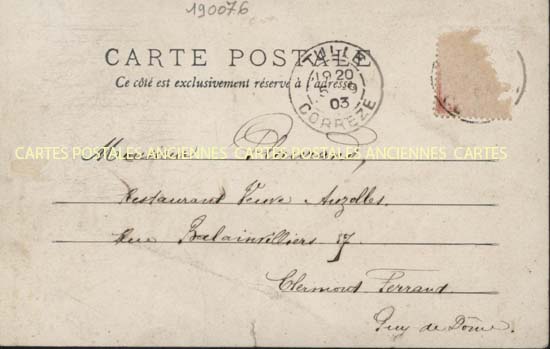 190076
CARTE POSTALE
Ce côté est exclusivement réservé à l'adresse
TULLE
19 20
9
03
CORRÈZE
Monsieur
CARTES POSTALES ANCIENNES CARTES POSTALES ANCIENNES CARTES
Restaurant Veuve Auzolles.
Rue Balainvilliers 37
Clermont Ferrand
Puy de Dôme